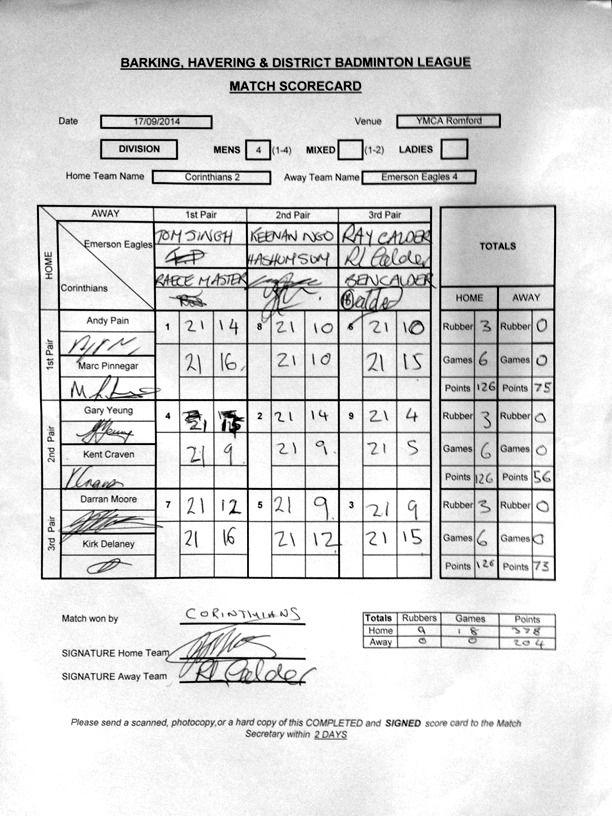 BARKING, HAVERING & DISTRICT BADMINTON LEAGUE
MATCH SCORECARD
Date 17/09/2014 Venue YMCA Romford
DIVISION MENS 4 (1-4) MIXED (1-2) LADIES
Home Team Name Corinthians 2 Away Team Name Emerson Eagles 4
AWAY 1st Pair 2nd Pair 3rd Pair
HOME
Emerson Eagles TOM SINGH KEENAN NGO RAY CALDER
HASHUM SUM Rl Calder
TOTALS
Corinthians RAECE MASTER BEN CALDER
B Calder
HOME AWAY
1st Pair
Andy Pain 1 21 14 8 21 10 6 21 10 Rubber 3 Rubber 0
Marc Pinnegar 21 16 21 10 21 15 Games 6 Games 0
Points 126 Points 75
2nd Pair
Gary Yeung 4 21 15 2 21 14 9 21 4 Rubber 3 Rubber 0
Kent Craven 21 9 21 9 21 5 Games 6 Games 0
Points 126 Points 56
3rd Pair
Darran Moore 7 21 12 5 21 9 3 21 9 Rubber 3 Rubber 0
Kirk Delaney 21 16 21 12 21 15 Games 6 Games 0
Points 126 Points 73
Match won by CORINTHIANS
Totals Rubbers Games Points
Home 9 18 378
Away 0 0 204
SIGNATURE Home Team
SIGNATURE Away Team Rl Calder
Please send a scanned, photocopy,or a hard copy of this COMPLETED and SIGNED score card to the Match
Secretary within 2 DAYS